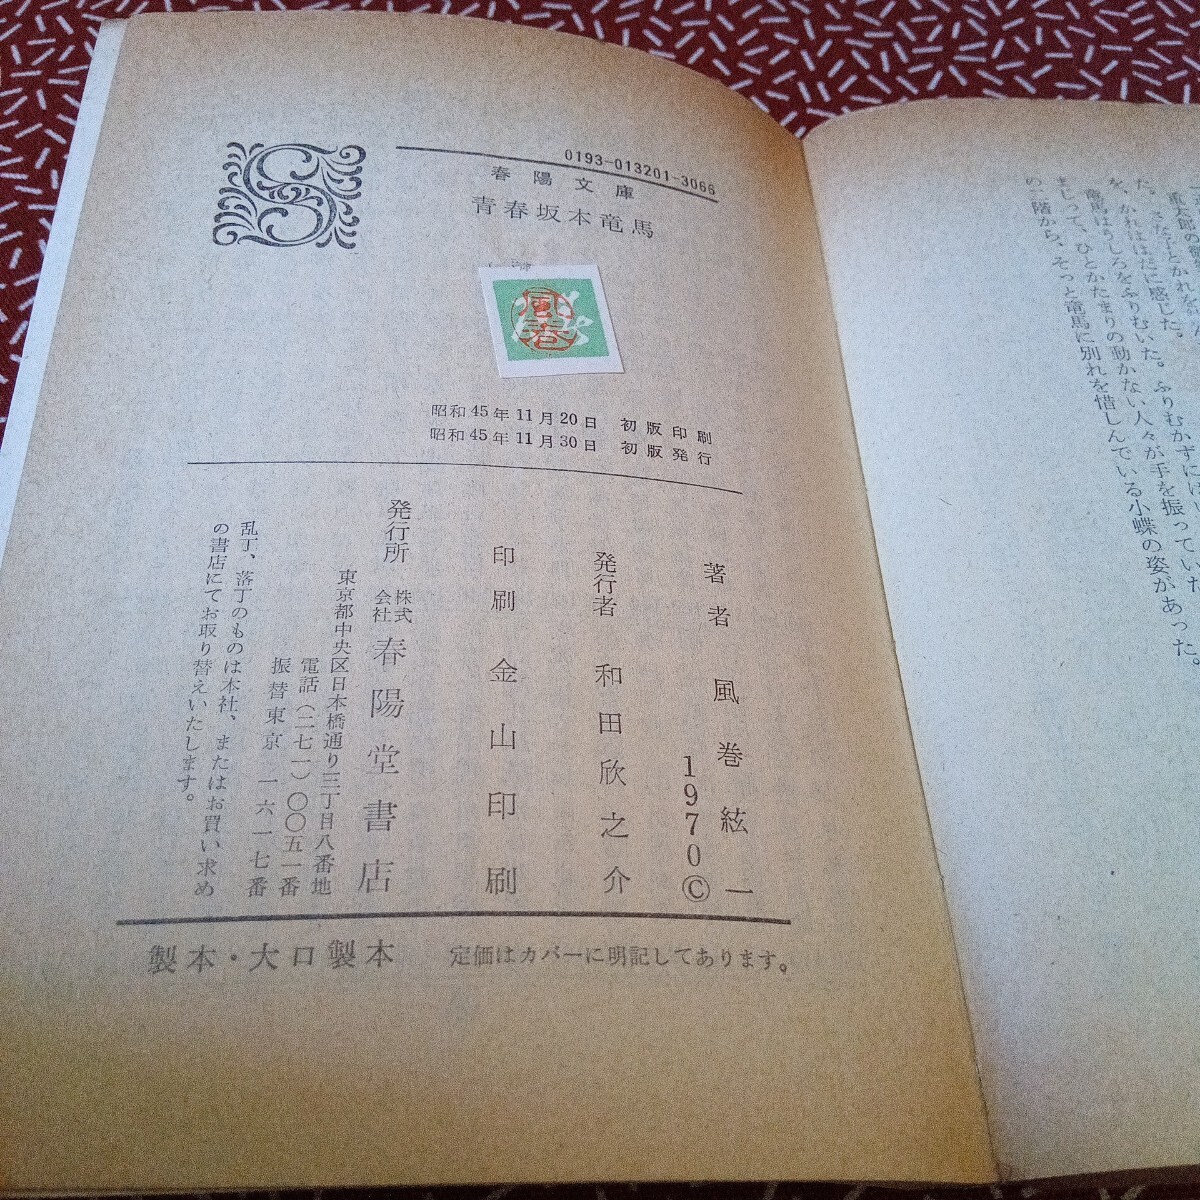 重太郎の
さな子とかれを
た。
を、かれははだに感じた。
竜馬はうしろをふりむいた。ふりむかずには
まじって、ひとかたまりの動かない人々が手を振っていた
の二階から、そっと竜馬に別れを惜しんでいる小蝶の姿があった。
0193-013201-3066
春陽文庫
青春坂本竜馬
S
風巻
昭和45年11月20日 初版印刷
昭和45年11月30日 初版発行
著者 風巻絃一
1970©
発行者 和田欣之介
印刷 金山印刷
発行所 株式会社 春陽堂書店
東京都中央区日本橋通り三丁目八番地
電話(二七一)〇〇五一番
振替東京 一六一七番
乱丁、落丁のものは本社、またはお買い求め
の書店にてお取り替えいたします。
製本・大口製本 定価はカバーに明記してあります。